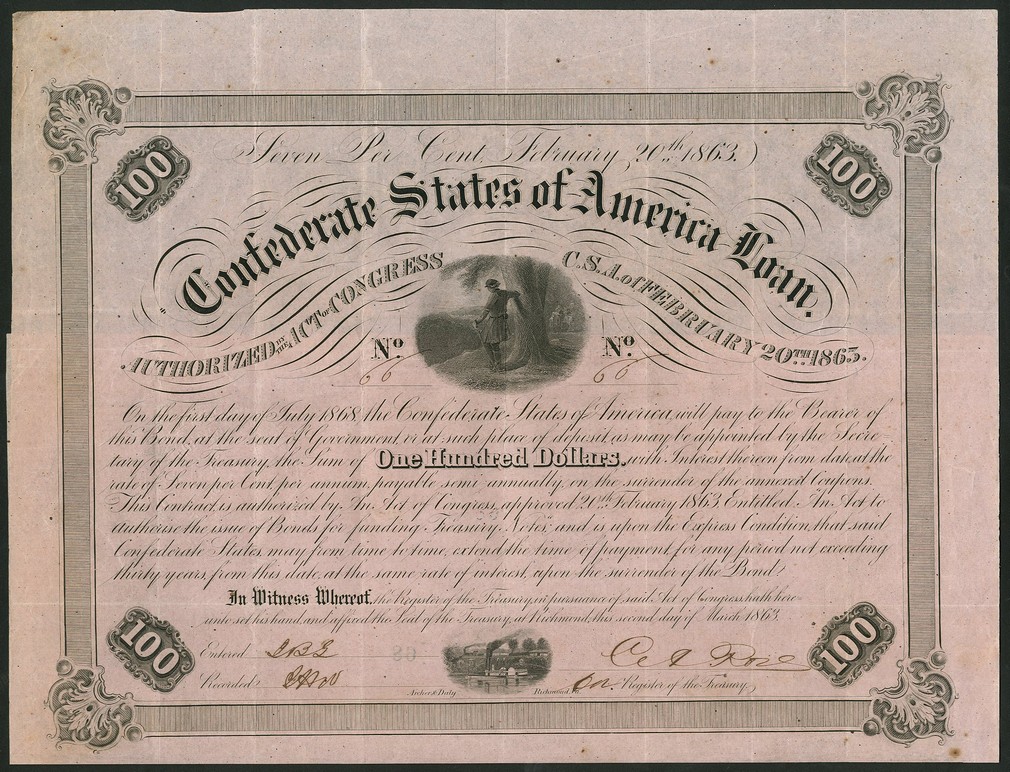 100
100
Seven Per Cent, February 20th 1863.
Confederate States of America Loan.
AUTHORIZED BY THE ACT OF CONGRESS C.S.A. of FEBRUARY 20TH 1863.
No. 66 No. 66
On the first day of July 1868, the Confederate States of America, will pay to the Bearer of
this Bond, at the seat of Government, or at such place of deposit, as may be appointed by the Secre-
tary of the Treasury, the Sum of One Hundred Dollars. with Interest thereon from date, at the
rate of Seven per Cent, per annum, payable semi-annually, on the surrender of the annexed Coupons.
This Contract is authorized by An Act of Congress, approved 20th February 1863, Entitled, An Act to
authorise the issue of Bonds for funding Treasury Notes, and is upon the Express Condition, that said
Confederate States, may from time to time, extend the time of payment, for any period not exceeding
thirty years, from this date, at the same rate of interest, upon the surrender of the Bond.
In Witness Whereof, the Register of the Treasury, in pursuance of said Act of Congress, hath here-
unto set his hand, and affixed the Seal of the Treasury, at Richmond, this second day of March 1863.
100
100
Entered
Recorded
Archer & Daly Richmond, Va.
Register of the Treasury